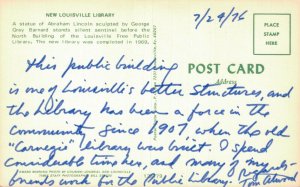 NEW LOUISVILLE LIBRARY
A statue of Abraham Lincoln sculpted by George
Gray Barnard stands silent sentinel before the
North Building of the Louisville Free Public
Library. The new library was completed in 1969.
7/29/76
PLACE
STAMP
HERE
POST CARD
Address
This public building
is one of Louisville's better structures, and
the Library has been a force in the
community since 1907, when the old
"Carnegie" library was built. I spend
considerable time here, and many of my
friends work for the Public Library.
Tom Atwood